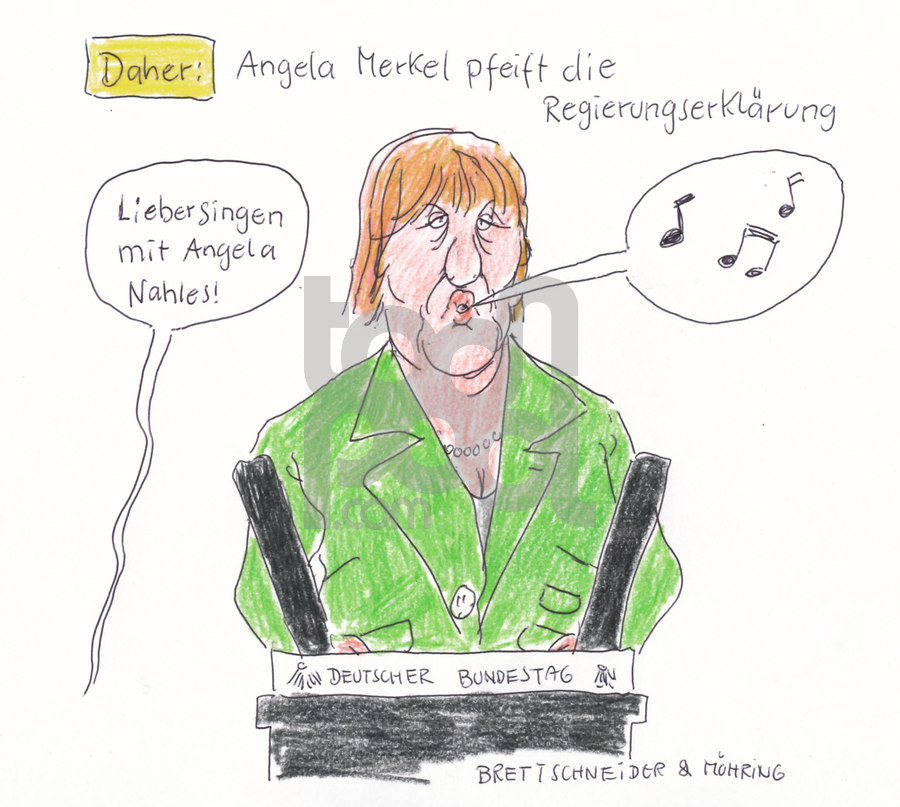 Daher: Angela Merkel pfeift die
Regierungserklärung
Liebersingen
mit Angela
Nahles!
toonpool
.com
DEUTSCHER BUNDESTAG
BRETTSCHNEIDER & MÖHRING